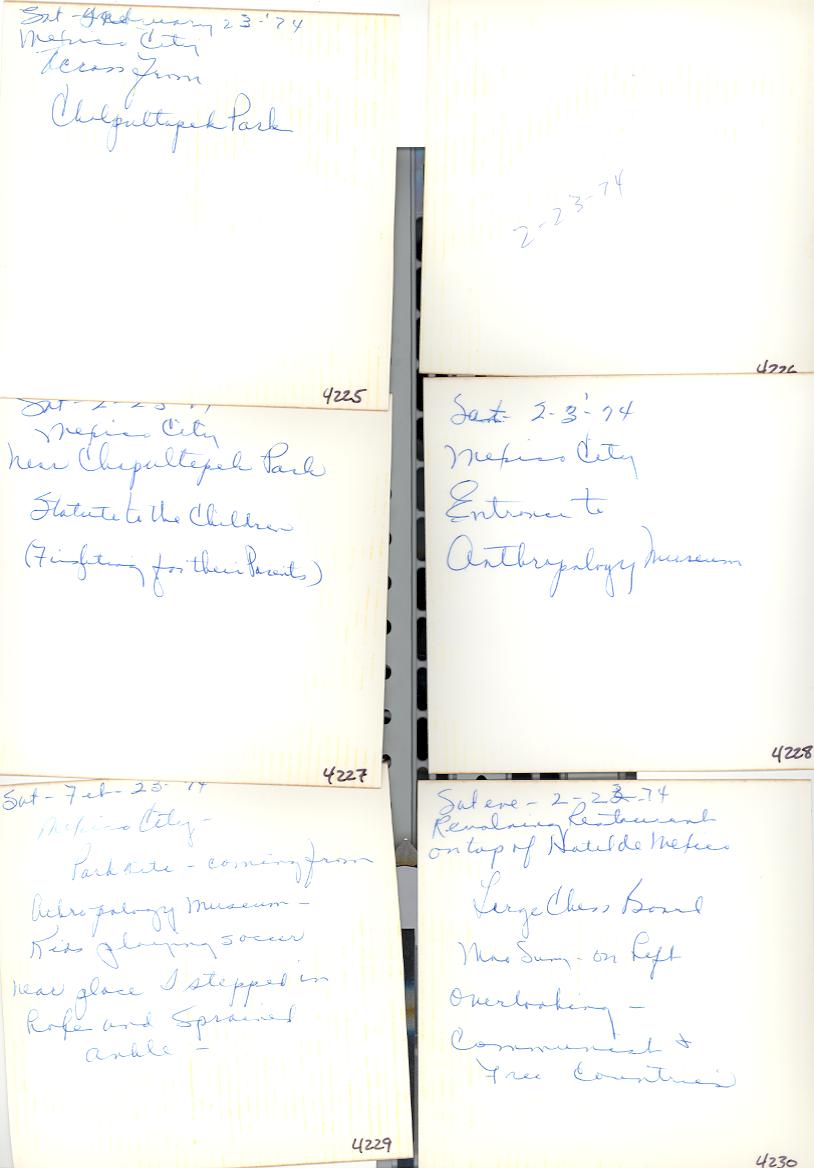 Sat - February 23-'74
Mexico City
Across From
Chalpultapek Park
4225
2-23-74
4226
Sat - 2-23-'74
Mexico City
Near Chapultepek Park
Statute to the Children
(Finghting for their Parents)
4227
Sat - 2-3'-74
Mexico City
Entrance to
Anthropology Museum
4228
Sat - Feb - 23-'74
Mexico City -
Park site - coming from
Athropology Museum -
Kids playing soccer
near place I stepped in
hole and Sprained
ankle -
4229
Sat eve - 2-23-74
Revolving Restaurant
on top of Hotel de Mexico
Large Chess Board
on Left
Overlooking -
Communist &
Free Countries
4230